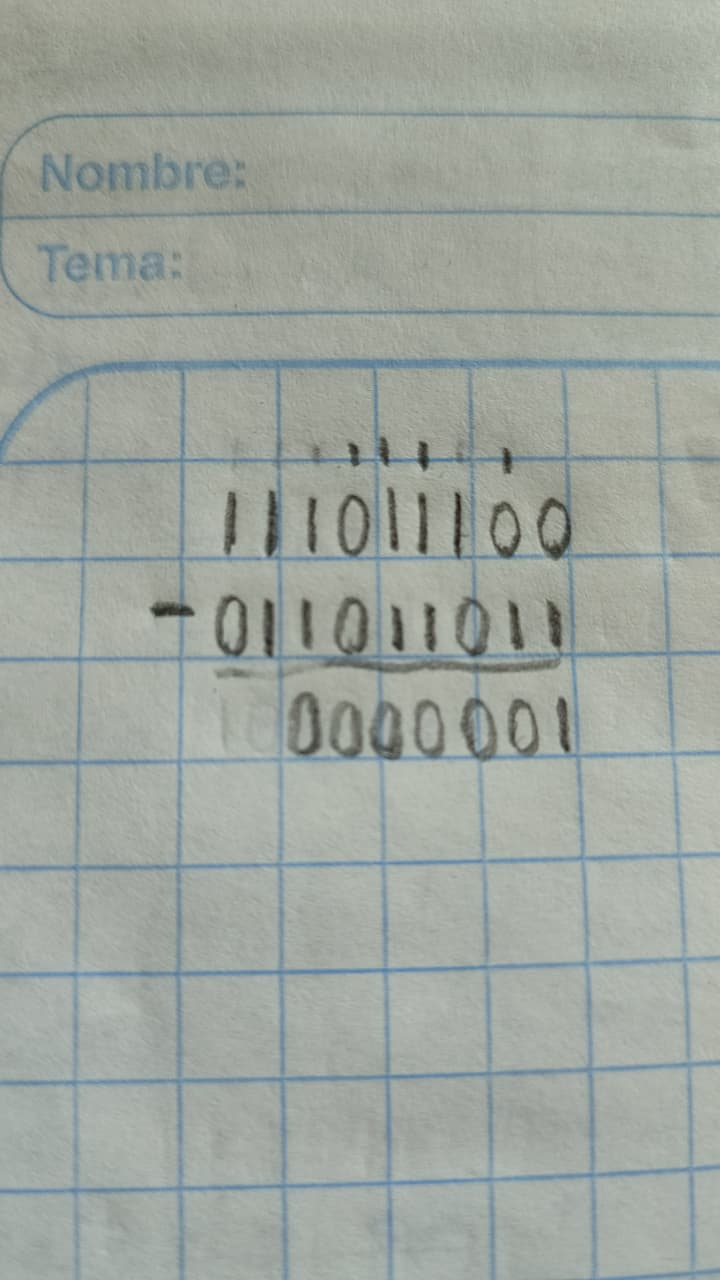 Nombre:
Tema:
ı ı ı ı
111011100
-011011011
0000001